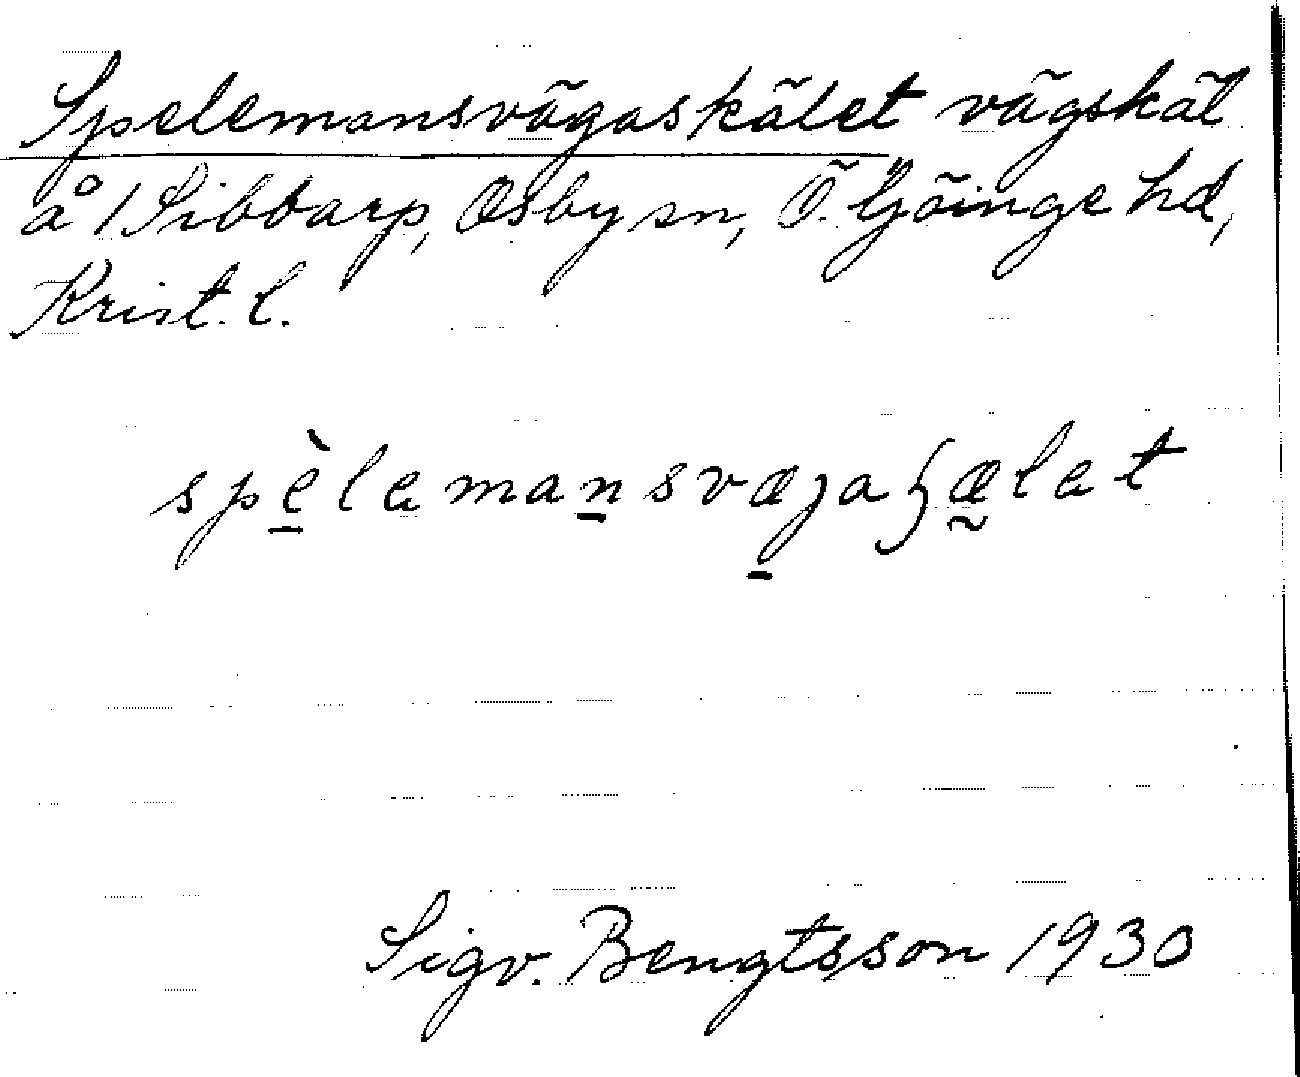 Spelemansvägaskälet vägskäl
å 1 Sibbarp, Osby sn, Ö. Göinge hd,
Krist. l.
spèlemansvæjaʃælet
Sigv. Bengtsson 1930